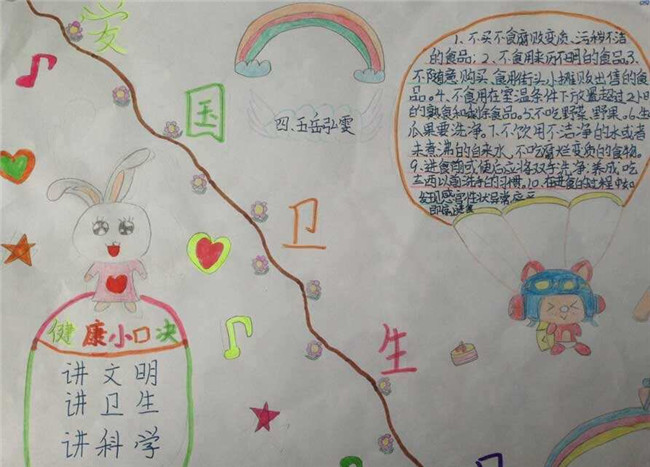 爱
国
卫
生
四、五岳弘雯
1、不买不食腐败变质、污秽不洁
的食品;2、不食用来历不明的食品3、
不随意购买、食用街头小摊贩出售的食
品。4、不食用在室温条件下放置超过2小时
的熟食和剩余食品。5.不吃野菜、野果。6.生
瓜果要洗净。7.不饮用不洁净的水或者
未煮沸的自来水,不吃腐烂变质的食物。
9、进食前或便后应将双手洗净,养成吃
东西以前洗手的习惯。10、在进食的过程中如
发现感官性状异常应
健康小口决
讲文明
讲卫生
讲科学